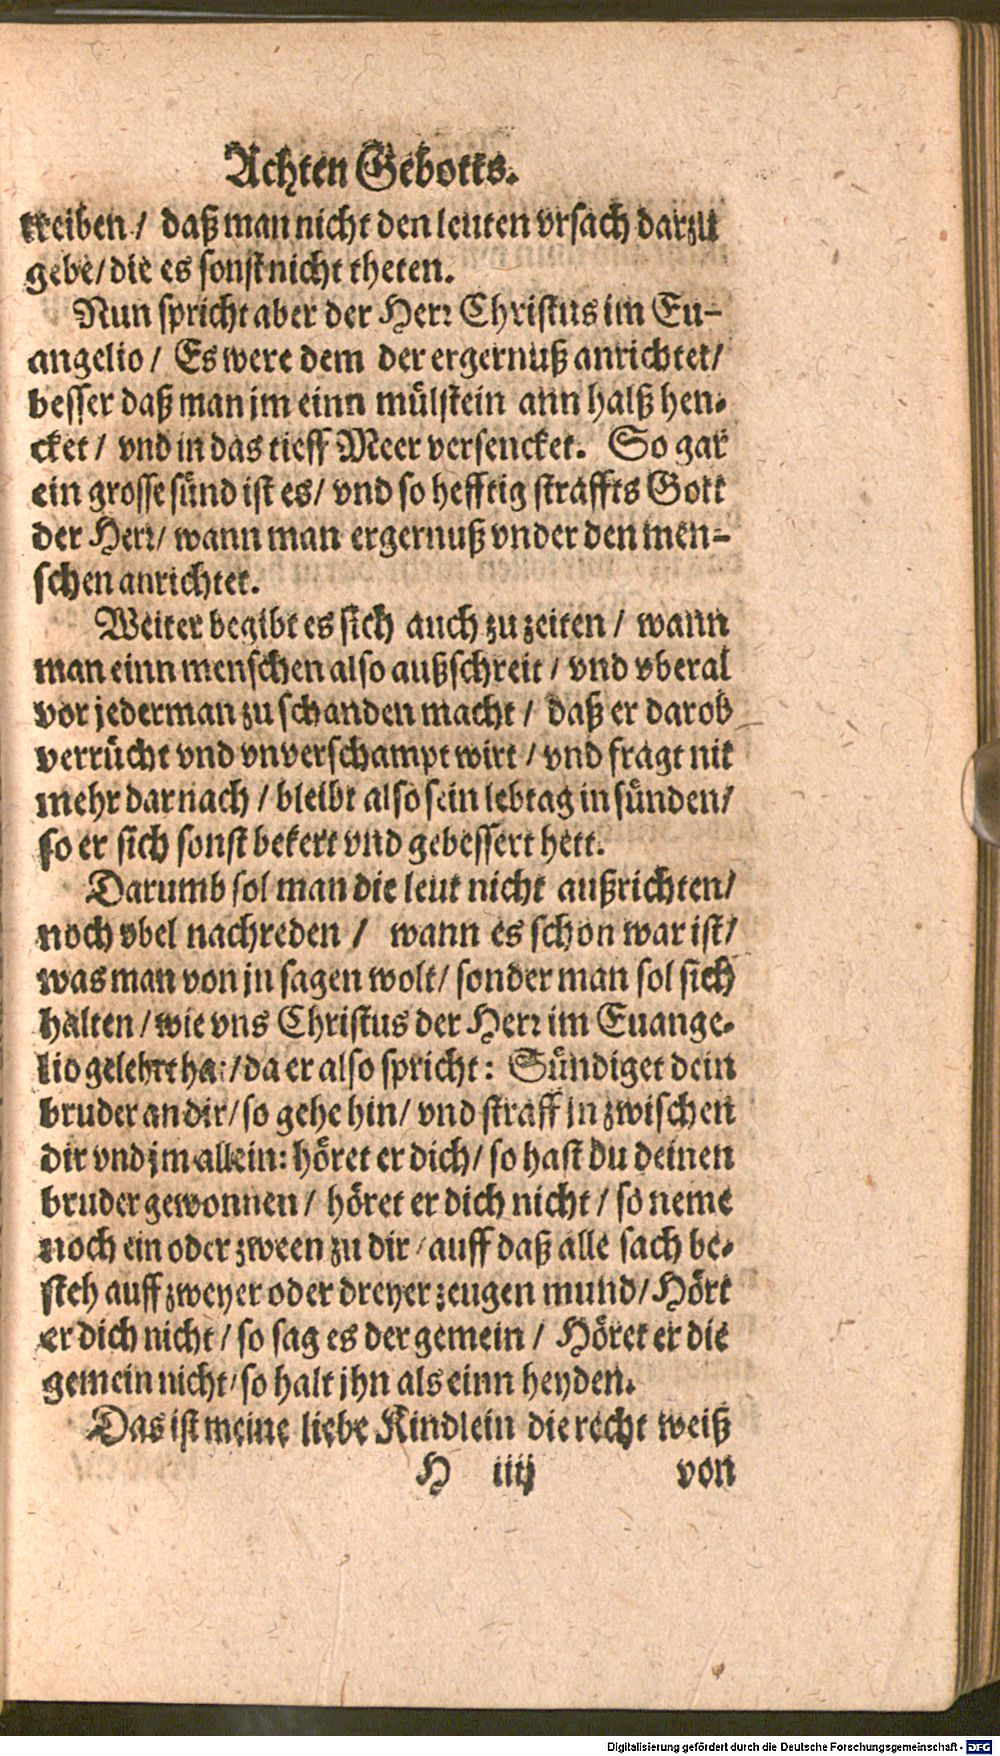 Achten Gebotts.
treiben / daß man nicht den leuten vrsach darzu
gebe / die es sonst nicht theten.
Nun spricht aber der Herr Christus im Eu-
angelio / Es were dem der ergernuß anrichtet /
besser daß man jm einn mülstein ann halß hen-
cket / vnd in das tieff Meer versencket. So gar
ein grosse sünd ist es / vnd so hefftig straffts Gott
der Herr / wann man ergernuß vnder den men-
schen anrichtet.
Weiter begibt es sich auch zu zeiten / wann
man einn menschen also außschreit / vnd vberal
vor jederman zu schanden macht / daß er darob
verrücht vnd vnverschampt wirt / vnd fragt nit
mehr darnach / bleibt also sein lebtag in sünden /
so er sich sonst bekert vnd gebessert hett.
Darumb sol man die leut nicht außrichten /
noch vbel nachreden / wann es schon war ist /
was man von jn sagen wolt / sonder man sol sich
halten / wie vns Christus der Herr im Euange-
lio gelehrt hat / da er also spricht: Sündiget dein
bruder an dir / so gehe hin / vnd straff jn zwischen
dir vnd jm allein: höret er dich / so hast du deinen
bruder gewonnen / höret er dich nicht / so neme
noch ein oder zween zu dir / auff daß alle sach be-
steh auff zweyer oder dreyer zeugen mund / Hört
er dich nicht / so sag es der gemein / Höret er die
gemein nicht / so halt jhn als einn heyden.
Das ist meine liebe Kindlein die recht weiß
H iiij von
Digitalisierung gefördert durch die Deutsche Forschungsgemeinschaft - DFG